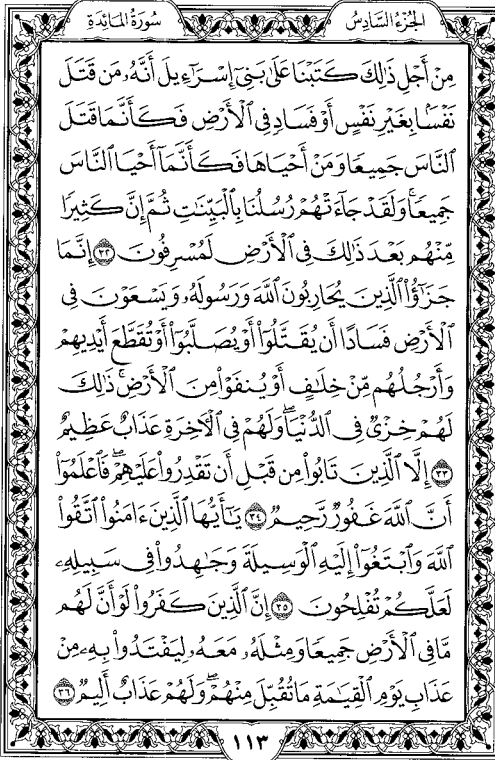 سُورَةُ المَائِدَةِ
الجُزءُ السَّادِسُ
مِنْ أَجْلِ ذَٰلِكَ كَتَبْنَا عَلَىٰ بَنِىٓ إِسْرَٰٓءِيلَ أَنَّهُۥ مَن قَتَلَ
نَفْسًۢا بِغَيْرِ نَفْسٍ أَوْ فَسَادٍ فِى ٱلْأَرْضِ فَكَأَنَّمَا قَتَلَ
ٱلنَّاسَ جَمِيعًا وَمَنْ أَحْيَاهَا فَكَأَنَّمَآ أَحْيَا ٱلنَّاسَ
جَمِيعًا ۚ وَلَقَدْ جَآءَتْهُمْ رُسُلُنَا بِٱلْبَيِّنَٰتِ ثُمَّ إِنَّ كَثِيرًا
مِّنْهُم بَعْدَ ذَٰلِكَ فِى ٱلْأَرْضِ لَمُسْرِفُونَ ٣٢ إِنَّمَا
جَزَٰٓؤُا۟ ٱلَّذِينَ يُحَارِبُونَ ٱللَّهَ وَرَسُولَهُۥ وَيَسْعَوْنَ فِى
ٱلْأَرْضِ فَسَادًا أَن يُقَتَّلُوٓا۟ أَوْ يُصَلَّبُوٓا۟ أَوْ تُقَطَّعَ أَيْدِيهِمْ
وَأَرْجُلُهُم مِّنْ خِلَٰفٍ أَوْ يُنفَوْا۟ مِنَ ٱلْأَرْضِ ۚ ذَٰلِكَ
لَهُمْ خِزْىٌ فِى ٱلدُّنْيَا ۖ وَلَهُمْ فِى ٱلْءَاخِرَةِ عَذَابٌ عَظِيمٌ
٣٣ إِلَّا ٱلَّذِينَ تَابُوا۟ مِن قَبْلِ أَن تَقْدِرُوا۟ عَلَيْهِمْ ۖ فَٱعْلَمُوٓا۟
أَنَّ ٱللَّهَ غَفُورٌ رَّحِيمٌ ٣٤ يَٰٓأَيُّهَا ٱلَّذِينَ ءَامَنُوا۟ ٱتَّقُوا۟
ٱللَّهَ وَٱبْتَغُوٓا۟ إِلَيْهِ ٱلْوَسِيلَةَ وَجَٰهِدُوا۟ فِى سَبِيلِهِۦ
لَعَلَّكُمْ تُفْلِحُونَ ٣٥ إِنَّ ٱلَّذِينَ كَفَرُوا۟ لَوْ أَنَّ لَهُم
مَّا فِى ٱلْأَرْضِ جَمِيعًا وَمِثْلَهُۥ مَعَهُۥ لِيَفْتَدُوا۟ بِهِۦ مِنْ
عَذَابِ يَوْمِ ٱلْقِيَٰمَةِ مَا تُقُبِّلَ مِنْهُمْ ۖ وَلَهُمْ عَذَابٌ أَلِيمٌ ٣٦
١١٣